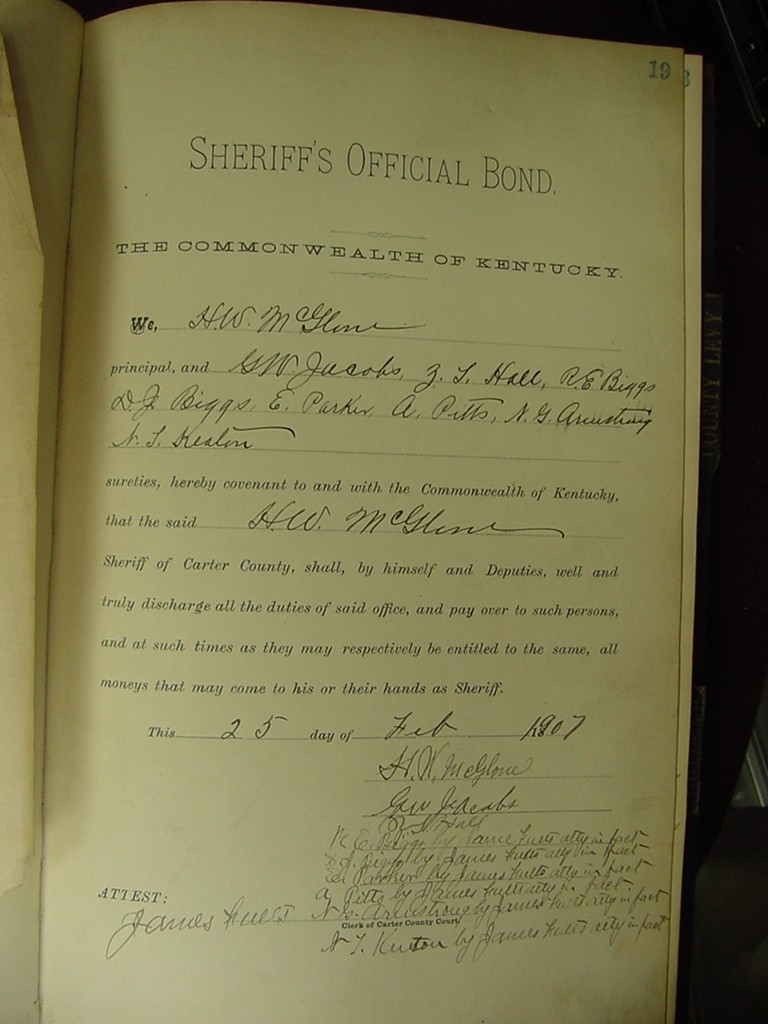 19
SHERIFF'S OFFICIAL BOND.
THE COMMONWEALTH OF KENTUCKY.
We, H.W. McGlone
principal, and G.W. Jacobs, Z. T. Hall, R.E. Biggs
D.J. Biggs, E. Parker, A. Pitts, N.G. Armstrong
N. T. Keaton
sureties, hereby covenant to and with the Commonwealth of Kentucky,
that the said H.W. McGlone
Sheriff of Carter County, shall, by himself and Deputies, well and
truly discharge all the duties of said office, and pay over to such persons,
and at such times as they may respectively be entitled to the same, all
moneys that may come to his or their hands as Sheriff.
This 25 day of Feb 1907
H.W. McGlone
G.W. Jacobs
Z. T. Hall
R. E. Biggs by James atty in fact
D.J. Biggs by James atty in fact
E. Parker by James atty in fact
A. Pitts by James atty in fact
N.G. Armstrong by James atty in fact
ATTEST:
James
Clerk of Carter County Court
N. T. Keaton by James atty in fact
COUNTY LEVY